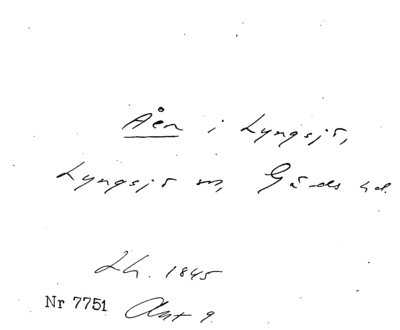 Åen i Lyngsjö,
Lyngsjö sn, Gärds hd.
Lh. 1845
Nr 7751 Akt 9.